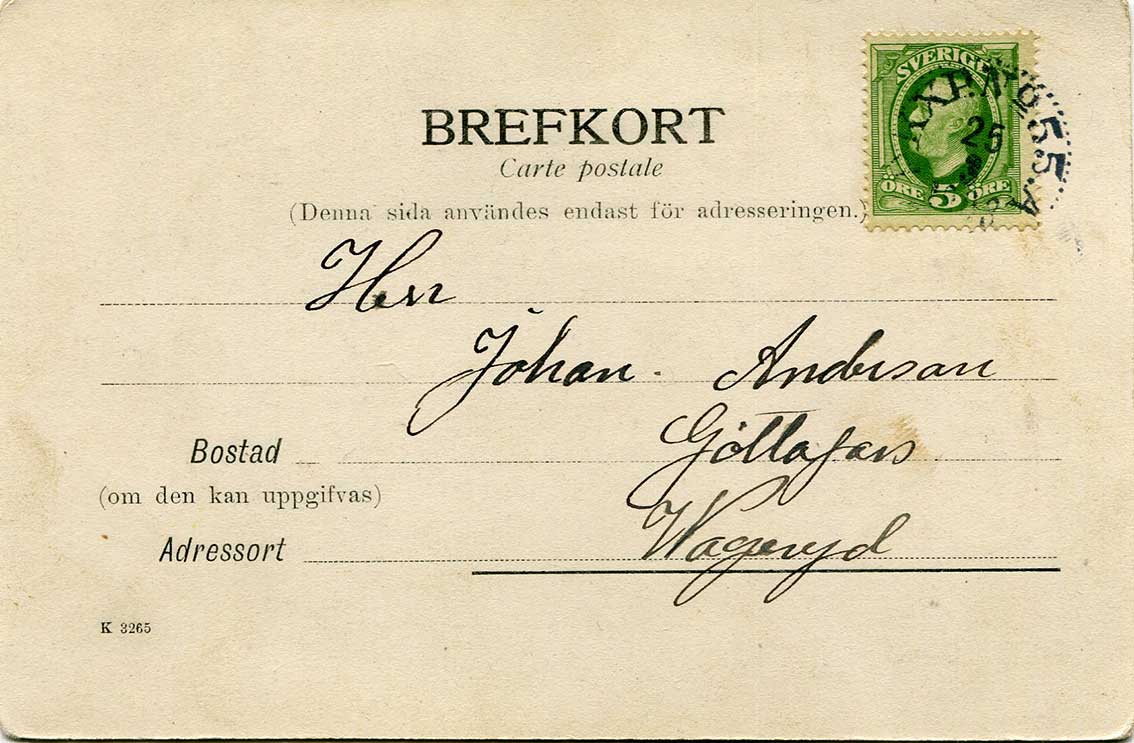 BREFKORT
Carte postale
(Denna sida användes endast för adresseringen.)
SVERIGE
ÖRE 5 ÖRE
PKXP. No 55. A
25
Herr
Johan Anderson
Göttafors
Bostad
(om den kan uppgifvas)
Wageryd
Adressort
K 3265